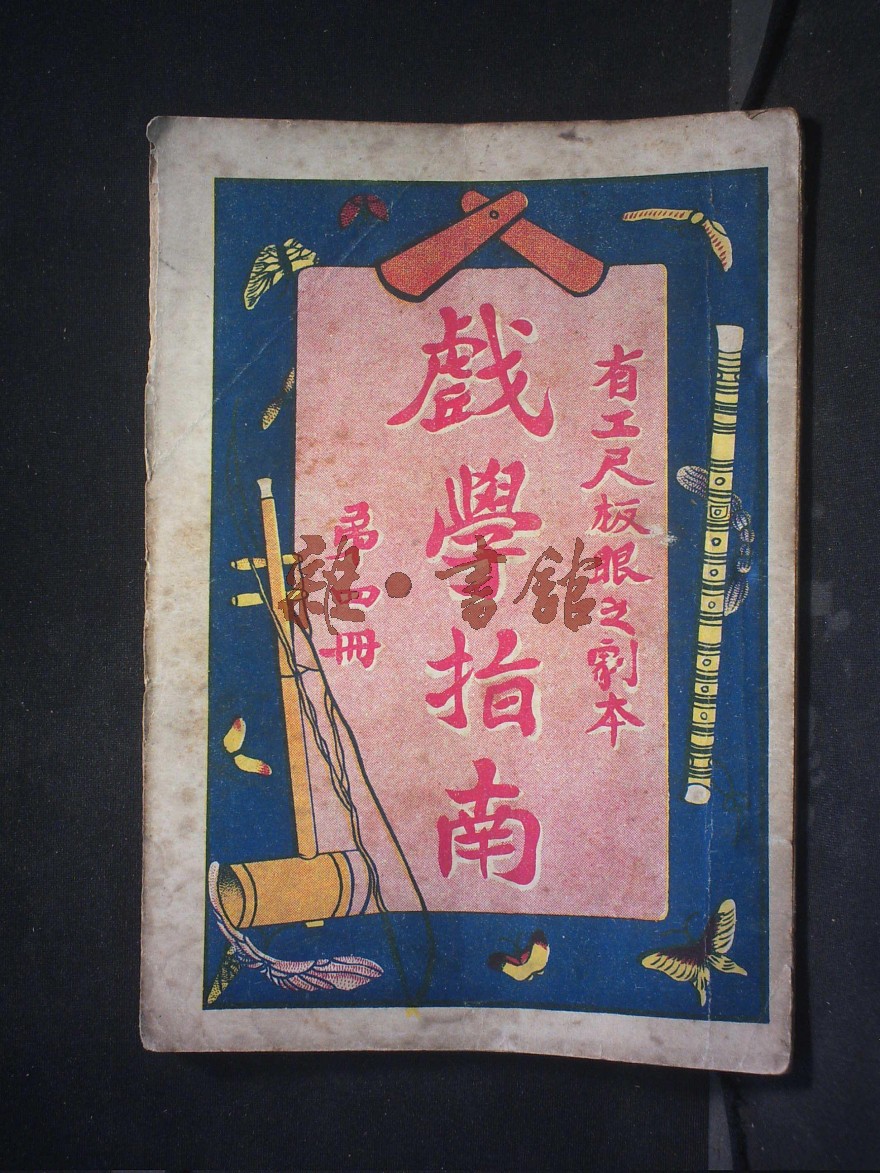 有工尺板眼之劇本
戲學指南
第四冊
雜·書館